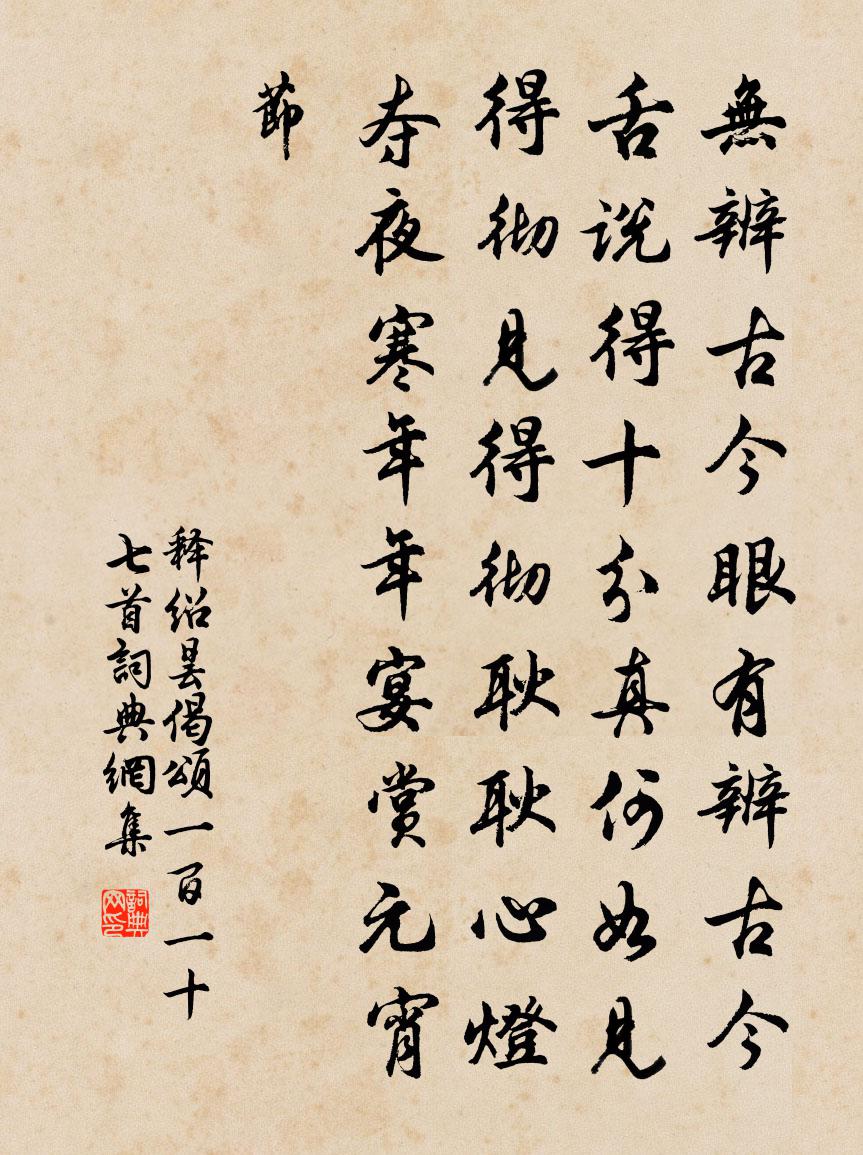 無辨古今眼有辨古今
舌説得十分真何如見
得徹見得徹耿耿心燈
夺夜寒年年宴賞元宵
節
释绍曇偈頌一百一十
七首詞典網集
詞典网印